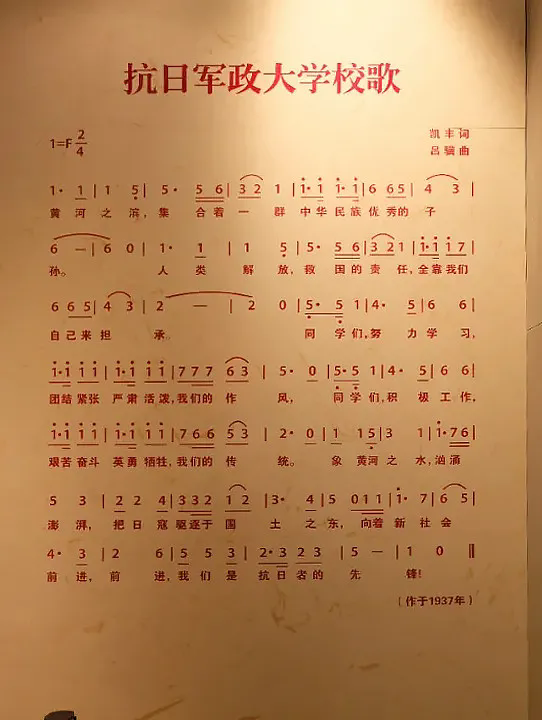 抗日军政大学校歌
1=F 2/4
凯丰词
吕骥曲
1· 1 | 1 5 | 5· 5 6 | 3 2 1 | 1·1 1·1 | 6 6 5 | 4 3 |
黄河之滨，集合着一群中华民族优秀的子
6 — | 6 0 | 1· 1 | 1 5 | 5· 5 6 | 3 2 1 | 1·1 1 7 |
孙。人类解放，救国的责任，全靠我们
6 6 5 | 4 3 | 2 — | 2 0 | 5· 5 1 | 4· 5 | 6 6 |
自己来担承。同学们，努力学习，
1·1 1 1 | 1·1 1 1 | 7 7 7 6 3 | 5· 0 | 5·5 1 | 4· 5 | 6 6 |
团结紧张严肃活泼，我们的作风，同学们，积极工作，
1·1 1 1 | 1·1 1 1 | 7 6 6 5 3 | 2· 0 | 1 1 5 | 3 1 | 1·7 6 |
艰苦奋斗英勇牺牲，我们的传统。象黄河之水，汹涌
5 3 | 2 2 4 | 3 3 2 1 2 | 3· 4 | 5 0 1 1 | 1· 7 | 6 5 |
澎湃，把日寇驱逐于国土之东，向着新社会
4· 3 | 2 6 | 5 5 3 | 2·3 2 3 | 5 — | 1 0 ‖
前进，前进，我们是抗日者的先锋！
（作于1937年）